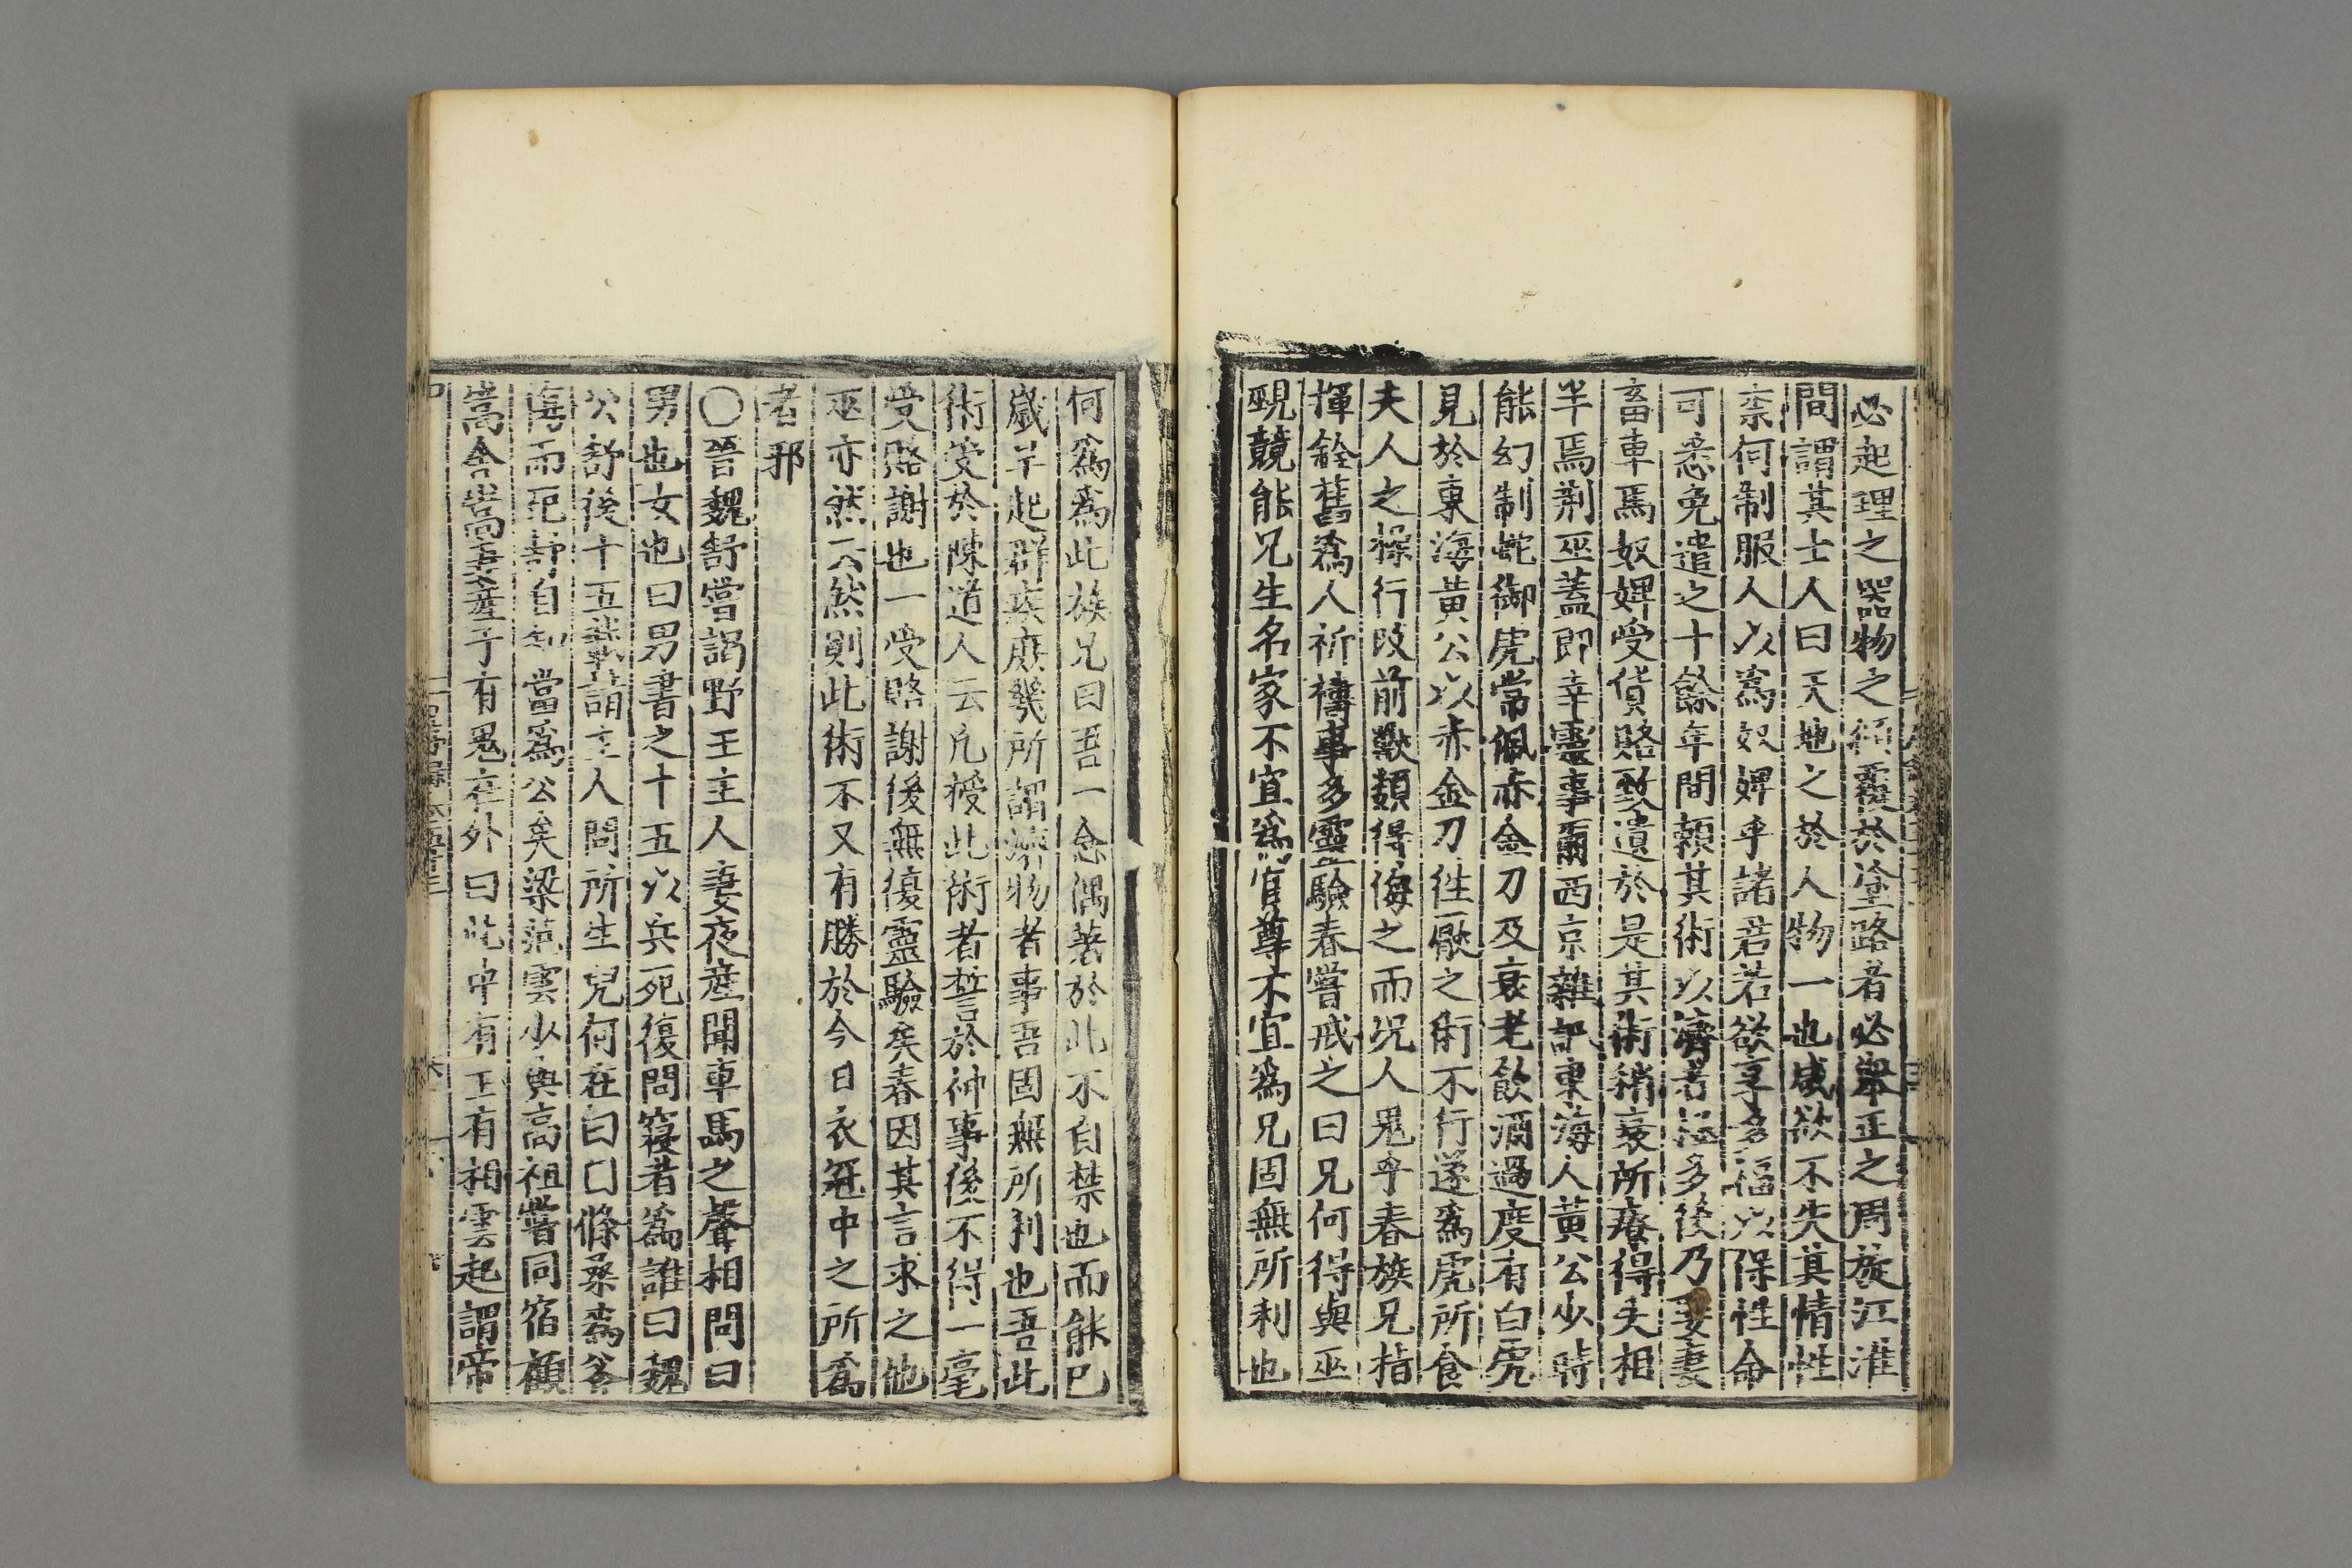 必起理之器物之傾覆於塗路者必舉正之周旋江淮
間謂其士人曰天地之於人物一也咸欲不失其情性
柰何制服人以爲奴婢乎諸君若欲享多福以保性命
可悉免遣之十餘年間賴其術以濟者極多後乃娶妻
畜車馬奴婢受貨賂致遺於是其術稍衰所療得失相
半焉荆巫蓋即幸靈事爾西京雜記東海人黃公少時
能幻制蛇御虎常佩赤金刀及衰老飲酒過度有白虎
見於東海黃公以赤金刀徃厭之術不行遂爲虎所食
夫人之操行改前獸類得侮之而况人鬼乎春族兄指
揮銓舊爲人祈禱事多靈驗春嘗戒之曰兄何得與巫
覡競能兄生名家不宜爲官尊不宜爲兄固無所利也
何爲爲此族兄曰吾一念偶著於此不自禁也而能已
歲旱起群疾庶幾所謂濟物者事吾固無所利也吾此
術受於陳道人云凡授此術者誓於神事後不得一毫
受賂謝也一受賂謝後無復靈驗矣春因其言求之他
巫亦然云然則此術不又有勝於今日衣冠中之所爲
者邪
〇晉魏舒嘗詣野王主人妻夜產聞車馬之聲相問曰
男也女也曰男書之十五以兵死復問寢者爲誰曰魏
公舒後十五載詣主人問所生兒何在曰因條桑爲斧
傷而死舒自知當爲公矣梁范雲少與高祖嘗同宿顧
暠舍暠妻產子有鬼在外曰此中有王有相雲起謂帝